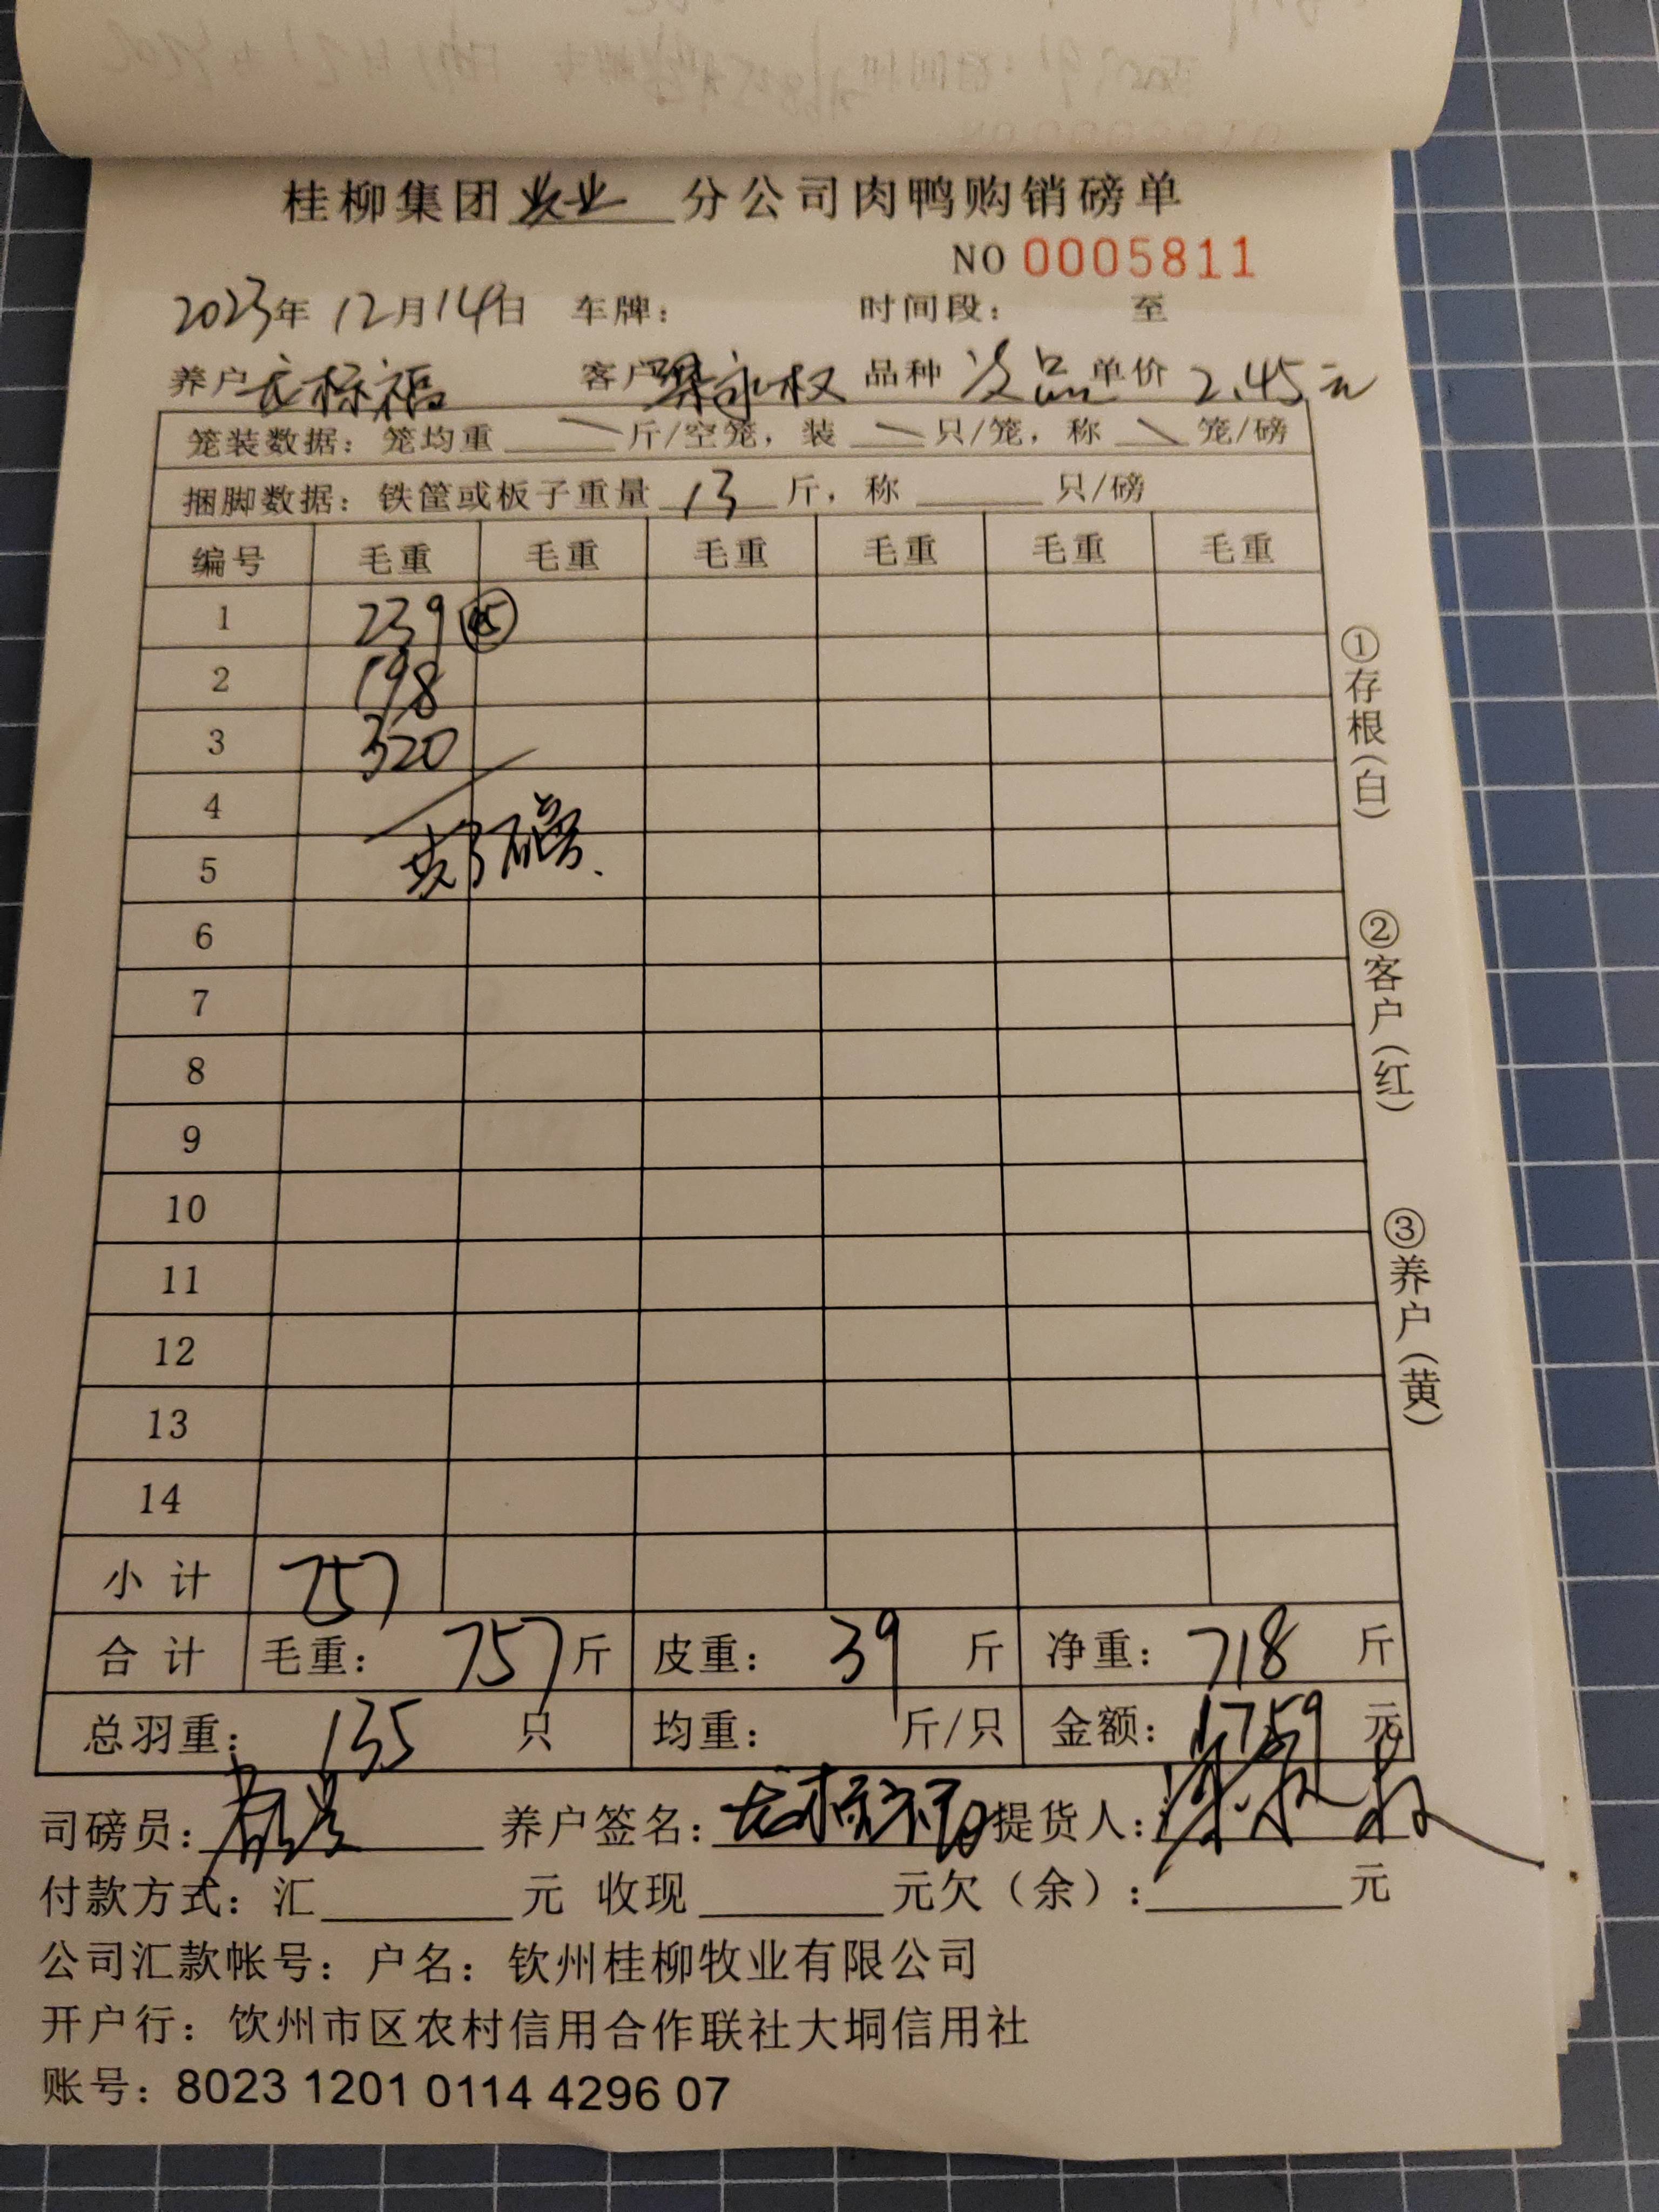 桂柳集团牧业分公司肉鸭购销磅单
NO 0005811
2023年12月14日 车牌： 时间段： 至
养户 客户梁永权 品种次品 单价2.45元
笼装数据：笼均重 斤/空笼，装 只/笼，称 笼/磅
捆脚数据：铁筐或板子重量 13 斤，称 只/磅
编号 毛重 毛重 毛重 毛重 毛重 毛重
1 239 45
2 198
3 320
4
5 共3磅.
6
7
8
9
10
11
12
13
14
小计 757
合计 毛重：757斤 皮重：39斤 净重：718斤
总羽重：135只 均重： 斤/只 金额：1759元
司磅员： 养户签名： 提货人：
付款方式：汇 元 收现 元欠（余）： 元
公司汇款帐号：户名：钦州桂柳牧业有限公司
开户行：饮州市区农村信用合作联社大垌信用社
账号：8023 1201 0114 4296 07
①存根（白）
②客户（红）
③养户（黄）